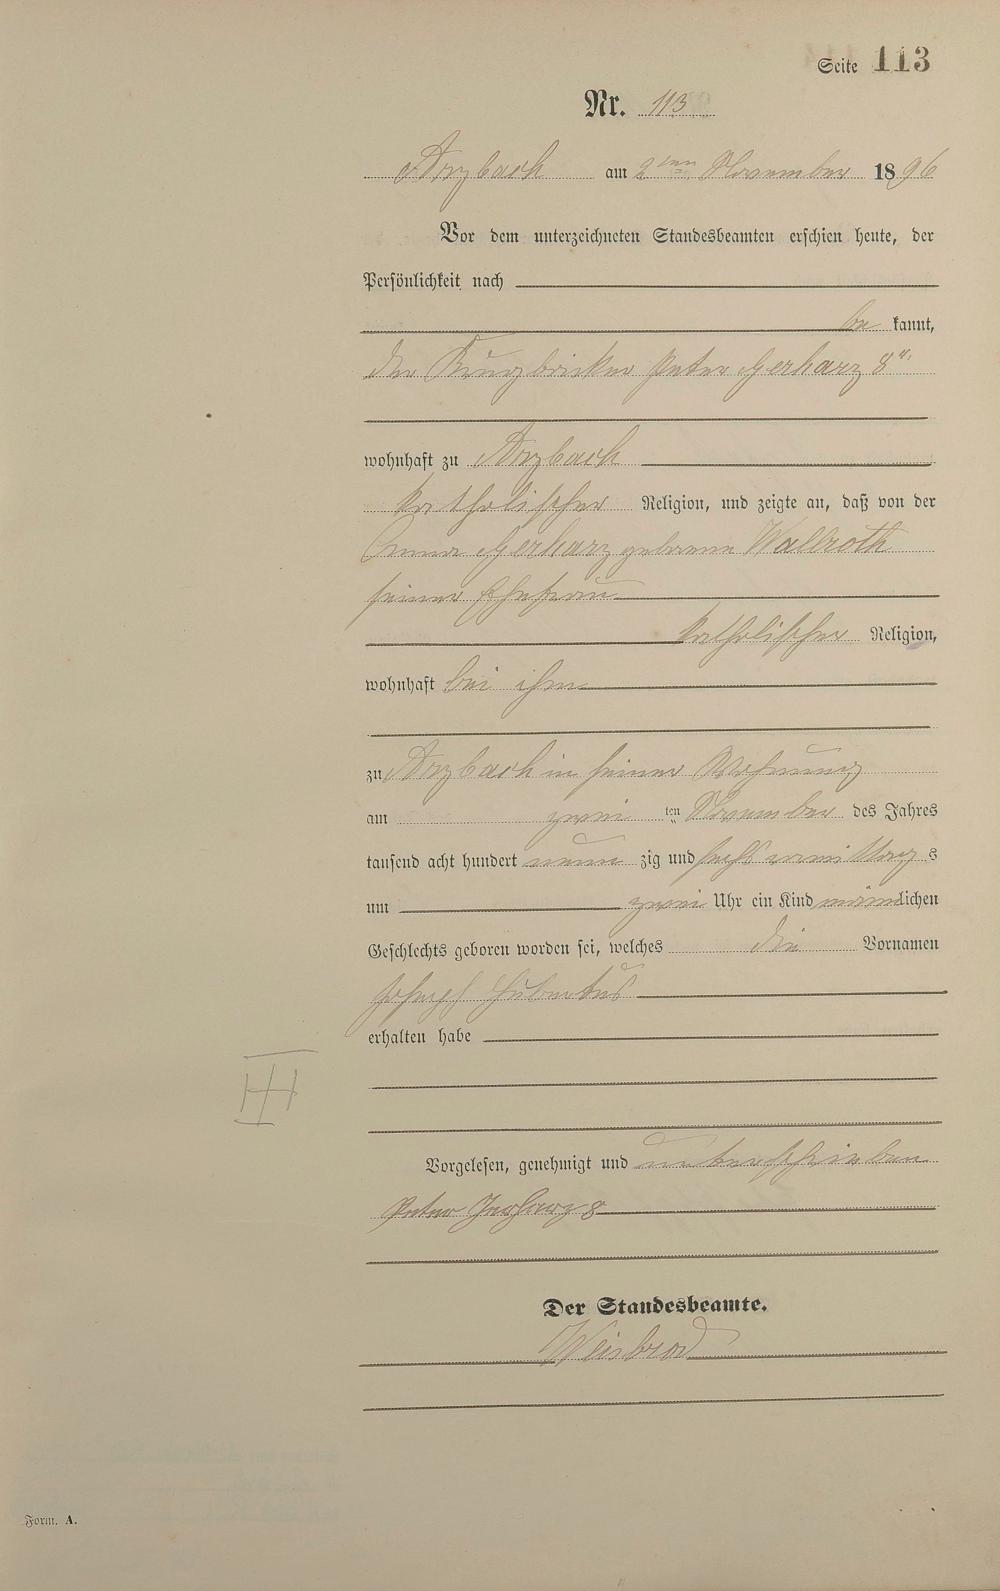 Seite 113
Nr. 113
Arzbach am 2ten November 1896
Vor dem unterzeichneten Standesbeamten erschien heute, der
Persönlichkeit nach
be kannt,
der Peter Gerharz 8ter
wohnhaft zu Arzbach
katholischer Religion, und zeigte an, daß von der
Anna Gerharz geborene Wallroth
seiner Ehefrau
katholischer Religion,
wohnhaft bei ihm
zu Arzbach in seiner Wohnung
am zwei ten November des Jahres
tausend acht hundert neun zig und sechs vormittag s
um zwei Uhr ein Kind männlichen
Geschlechts geboren worden sei, welches die Vornamen
Joseph Hubertus
erhalten habe
Vorgelesen, genehmigt und unterschrieben
Peter Gerharz 8
Der Standesbeamte.
Weisbrod
Form. A.